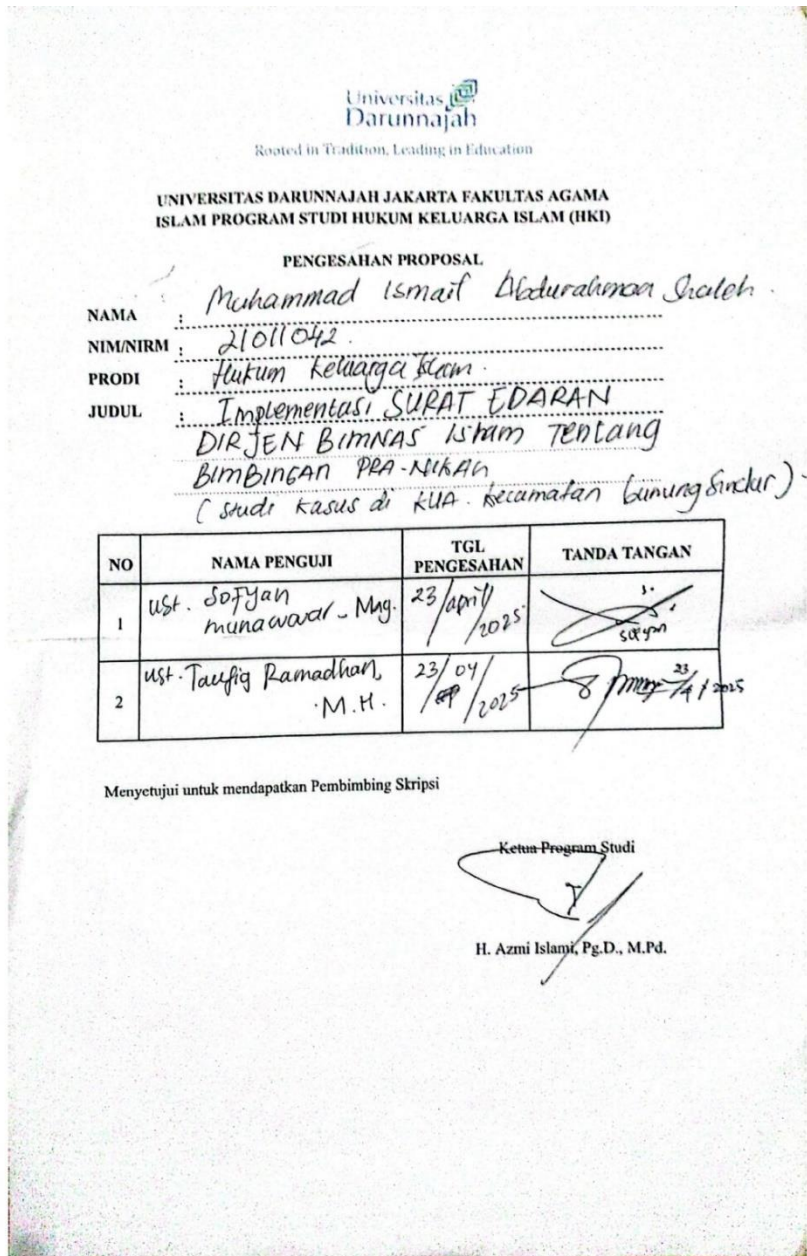 Universitas
Darunnajah
Rooted in Tradition, Leading in Education
UNIVERSITAS DARUNNAJAH JAKARTA FAKULTAS AGAMA
ISLAM PROGRAM STUDI HUKUM KELUARGA ISLAM (HKI)
PENGESAHAN PROPOSAL
NAMA : Muhammad Ismail Abdurahman Shaleh.
NIM/NIRM : 21011042.
PRODI : Hukum Keluarga Islam.
JUDUL : Implementasi SURAT EDARAN
DIRJEN BIMNAS Islam Tentang
BIMBINGAN PRA-NIKAH
(Studi Kasus di KUA. Kecamatan Gunung Sindur).
NO NAMA PENGUJI TGL PENGESAHAN TANDA TANGAN
1 Ust. Sofyan munawwar - Mag. 23/april/2025 sofyan
2 Ust. Taufiq Ramadhan, M.H. 23/04/2025 23/4/2025
Menyetujui untuk mendapatkan Pembimbing Skripsi
Ketua Program Studi
H. Azmi Islami, Pg.D., M.Pd.